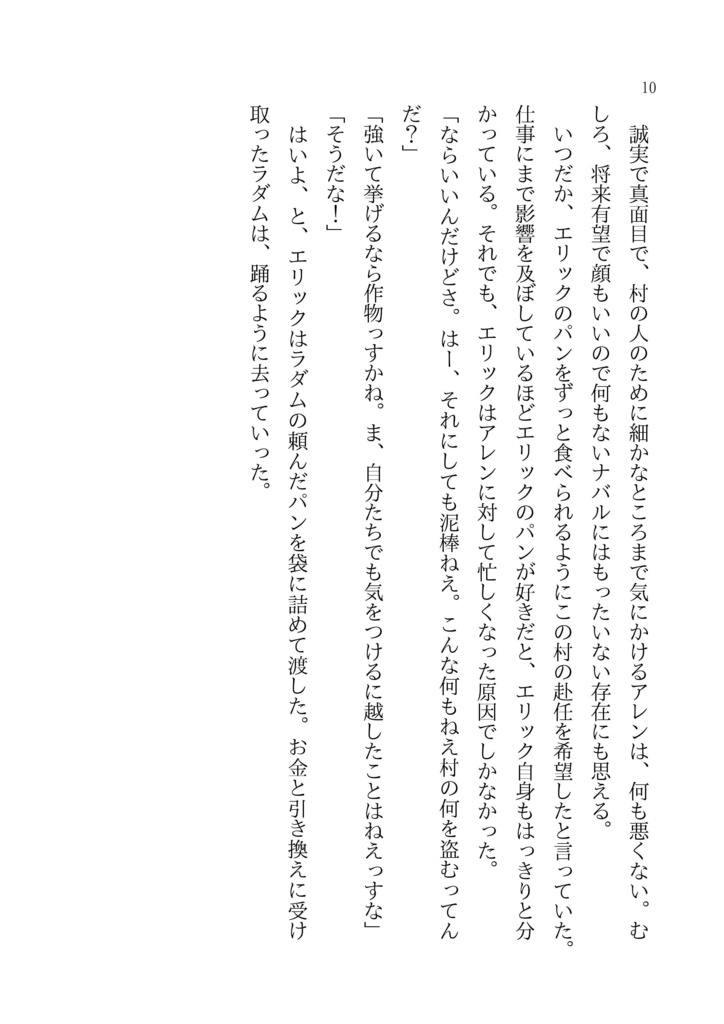 10
誠実で真面目で、村の人のために細かなところまで気にかけるアレンは、何も悪くない。む
しろ、将来有望で顔もいいので何もないナバルにはもったいない存在にも思える。
いつだか、エリックのパンをずっと食べられるようにこの村の赴任を希望したと言っていた。
仕事にまで影響を及ぼしているほどエリックのパンが好きだと、エリック自身もはっきりと分
かっている。それでも、エリックはアレンに対して忙しくなった原因でしかなかった。
「ならいいんだけどさ。はー、それにしても泥棒ねえ。こんな何もねえ村の何を盗むってん
だ？」
「強いて挙げるなら作物っすかね。ま、自分たちでも気をつけるに越したことはねえっすな」
「そうだな！」
はいよ、と、エリックはラダムの頼んだパンを袋に詰めて渡した。お金と引き換えに受け
取ったラダムは、踊るように去っていった。